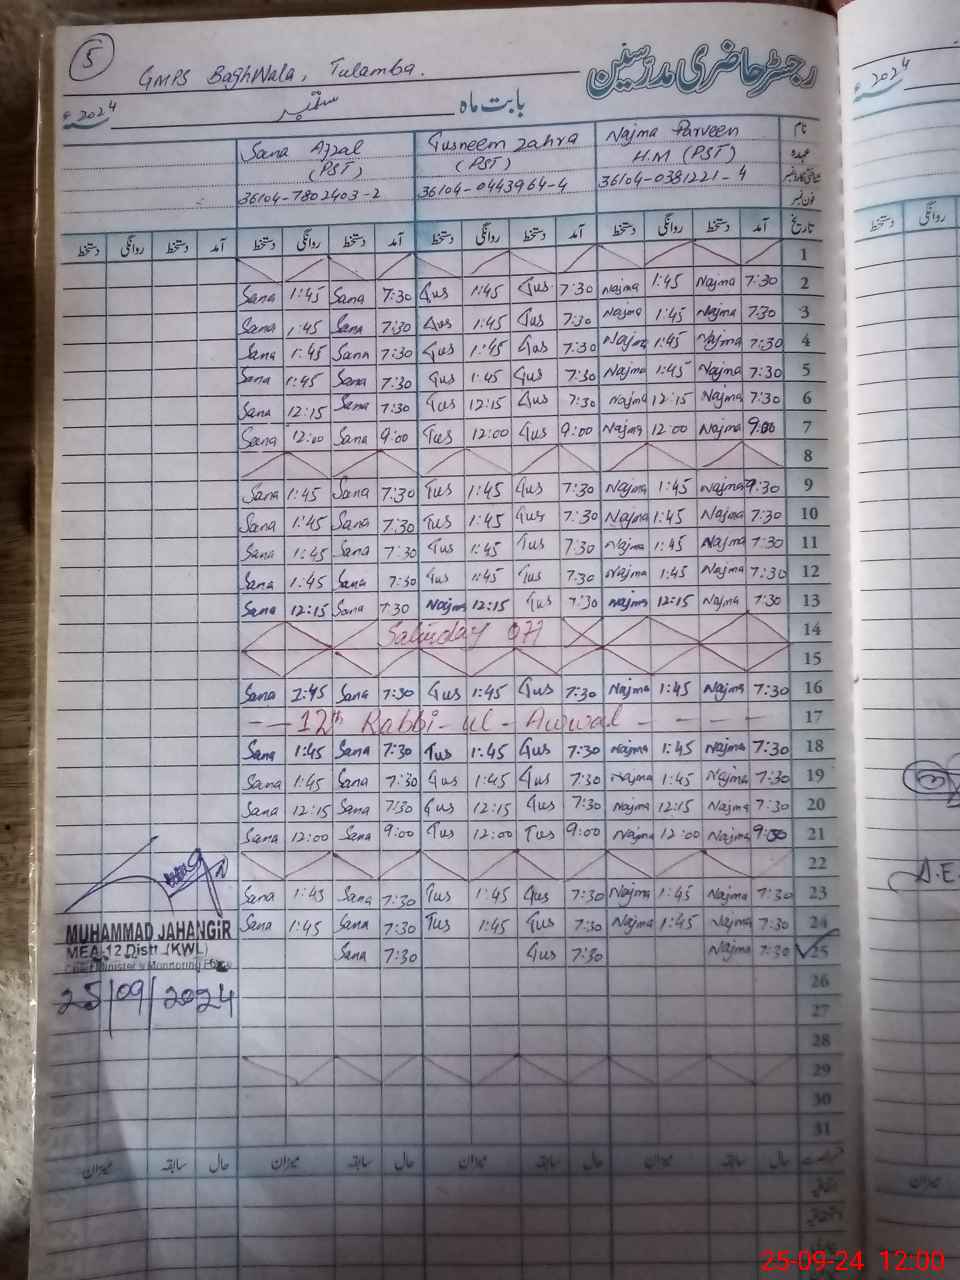 5
GMPS BaghWala, Tulamba.
رجسٹر حاضری مدرسین
2024ء
بابت ماہ ستمبر
نام Najma Parveen Tusneem Zahra Sana Afzal
عہدہ H.M (PST) (PST) (PST)
36104-0381221-4 36104-0443964-4 36104-7802403-2
فون نمبر
تاریخ آمد دستخط روانگی دستخط آمد دستخط روانگی دستخط آمد دستخط روانگی دستخط آمد دستخط روانگی دستخط
1
Sana 1:45 Sana 7:30 Tus 1:45 Tus 7:30 Najma 1:45 Najma 7:30 2
Sana 1:45 Sana 7:30 Tus 1:45 Tus 7:30 Najma 1:45 Najma 7:30 3
Sana 1:45 Sana 7:30 Tus 1:45 Tus 7:30 Najma 1:45 Najma 7:30 4
Sana 1:45 Sana 7:30 Tus 1:45 Tus 7:30 Najma 1:45 Najma 7:30 5
Sana 12:15 Sana 7:30 Tus 12:15 Tus 7:30 Najma 12:15 Najma 7:30 6
Sana 12:00 Sana 9:00 Tus 12:00 Tus 9:00 Najma 12:00 Najma 9:00 7
8
Sana 1:45 Sana 7:30 Tus 1:45 Tus 7:30 Najma 1:45 Najma 7:30 9
Sana 1:45 Sana 7:30 Tus 1:45 Tus 7:30 Najma 1:45 Najma 7:30 10
Sana 1:45 Sana 7:30 Tus 1:45 Tus 7:30 Najma 1:45 Najma 7:30 11
Sana 1:45 Sana 7:30 Tus 1:45 Tus 7:30 Najma 1:45 Najma 7:30 12
Sana 12:15 Sana 7:30 Najma 12:15 Tus 7:30 Najma 12:15 Najma 7:30 13
Saturday off 14
15
Sana 1:45 Sana 7:30 Tus 1:45 Tus 7:30 Najma 1:45 Najma 7:30 16
12th Rabbi-ul-Awwal 17
Sana 1:45 Sana 7:30 Tus 1:45 Tus 7:30 Najma 1:45 Najma 7:30 18
Sana 1:45 Sana 7:30 Tus 1:45 Tus 7:30 Najma 1:45 Najma 7:30 19
Sana 12:15 Sana 7:30 Tus 12:15 Tus 7:30 Najma 12:15 Najma 7:30 20
Sana 12:00 Sana 9:00 Tus 12:00 Tus 9:00 Najma 12:00 Najma 9:00 21
22
Sana 1:45 Sana 7:30 Tus 1:45 Tus 7:30 Najma 1:45 Najma 7:30 23
Sana 1:45 Sana 7:30 Tus 1:45 Tus 7:30 Najma 1:45 Najma 7:30 24
Sana 7:30 Tus 7:30 Najma 7:30 25
MUHAMMAD JAHANGIR
MEA-12 Distt.(KWL)
Chief Minister's Monitoring Force
25/09/2024
26
27
28
29
30
31
حال سابقہ میزان حال سابقہ میزان حال سابقہ میزان حال سابقہ میزان
2024ء
دستخط روانگی
A.E.
میزان
25-09-24 12:00